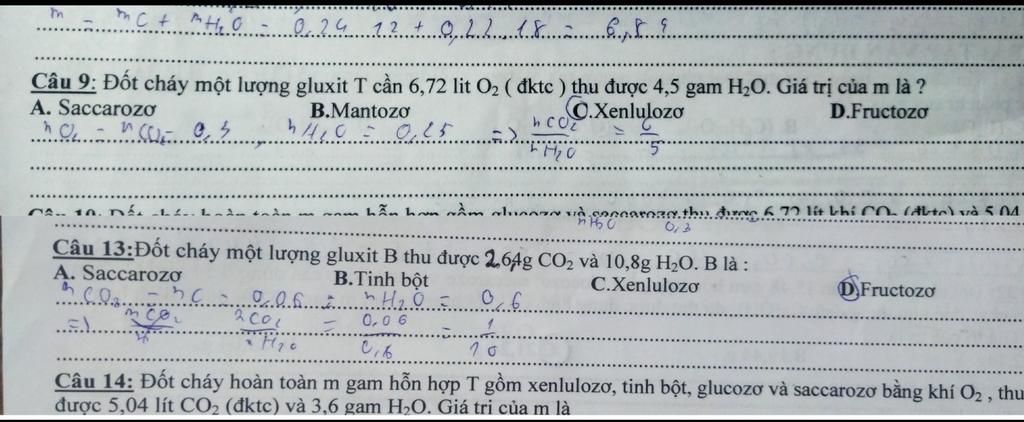 m = mC + mH₂O = 0,24 12 + 0,22.18 = 6,8 g
Câu 9: Đốt cháy một lượng gluxit T cần 6,72 lit O₂ ( đktc ) thu được 4,5 gam H₂O. Giá trị của m là ?
A. Saccarozơ B.Mantozơ C.Xenlulozơ D.Fructozơ
nO₂ = nCO₂ = 0,3 , nH₂O = 0,25 => nCO₂ / nH₂O = 6 / 5
Câu 10: Đốt cháy hoàn toàn m gam hỗn hợp gồm glucozơ và saccarozơ thu được 6,72 lít khí CO₂ (đktc) và 5,04
nH₂O 0,3
Câu 13:Đốt cháy một lượng gluxit B thu được 2,64g CO₂ và 10,8g H₂O. B là :
A. Saccarozơ B.Tinh bột C.Xenlulozơ D.Fructozơ
nCO₂ = nC = 0,06 = nH₂O = 0,6
=> nCO₂ nCO₂ / nH₂O = 0,06 / 0,6 = 1 / 10
Câu 14: Đốt cháy hoàn toàn m gam hỗn hợp T gồm xenlulozơ, tinh bột, glucozơ và saccarozơ bằng khí O₂ , thu
được 5,04 lít CO₂ (đktc) và 3,6 gam H₂O. Giá trị của m là